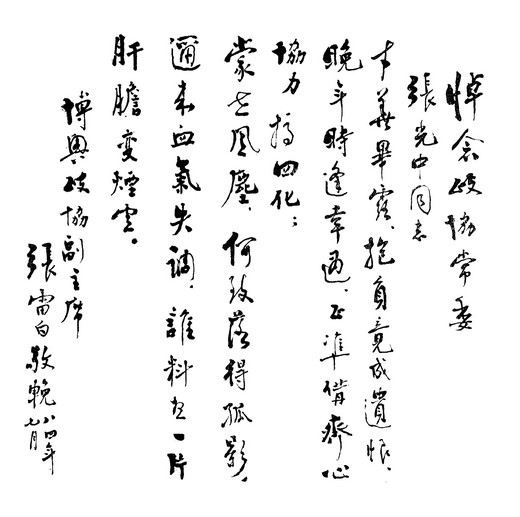 悼念政協常委
張光中同志
才華畢露,抱負竟成遺恨,
晚年時逢幸遇,正準備齊心
協力搞四化;
蒙世風塵,何致落得孤影,
邇来血氣失調,誰料想一片
肝膽變煙雲。
博興政協副主席
張雷白敬輓
八四年
七月